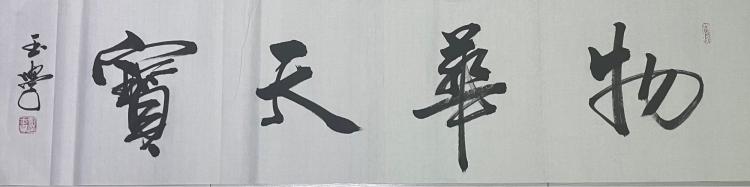 物華天寶
玉學